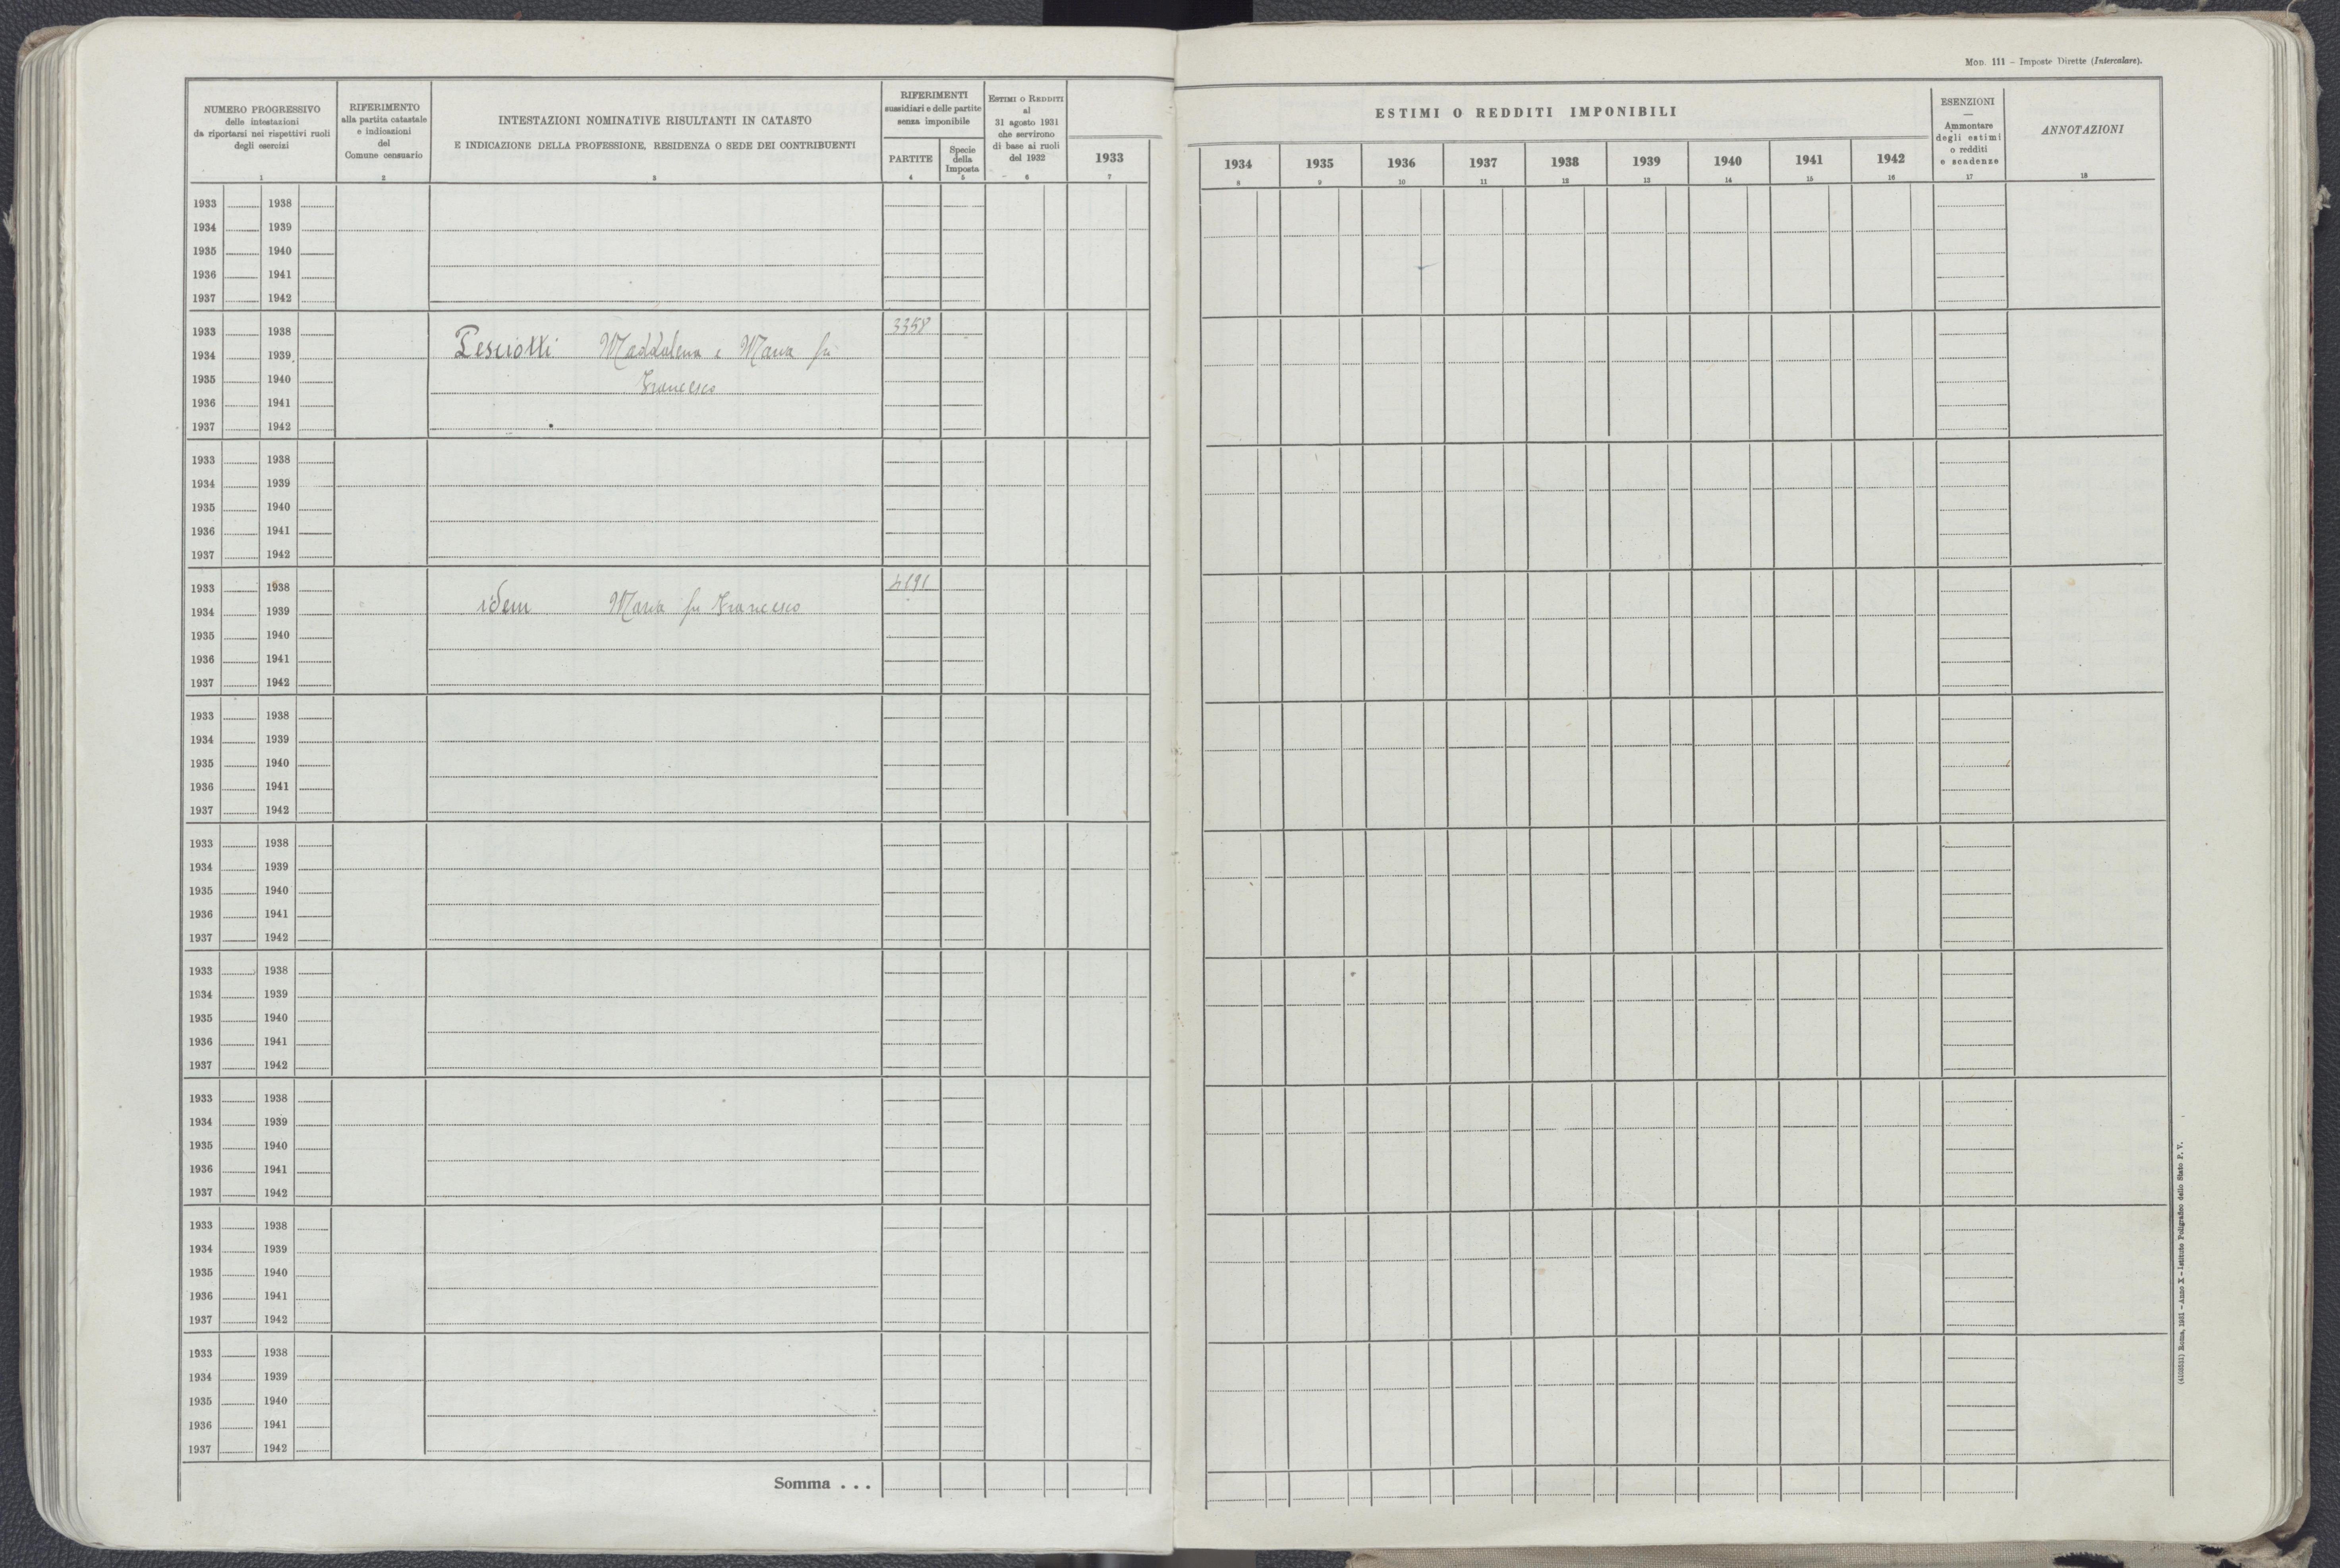 MOD. 111 – Imposte Dirette (Intercalare).
NUMERO PROGRESSIVO
delle intestazioni
da riportarsi nei rispettivi ruoli
degli esercizi
1
RIFERIMENTO
alla partita catastale
e indicazioni
del
Comune censuario
2
INTESTAZIONI NOMINATIVE RISULTANTI IN CATASTO
E INDICAZIONE DELLA PROFESSIONE, RESIDENZA O SEDE DEI CONTRIBUENTI
3
RIFERIMENTI
sussidiari e delle partite
senza imponibile
PARTITE
4
Specie
della
Imposta
5
ESTIMI O REDDITI
al
31 agosto 1931
che servirono
di base ai ruoli
del 1932
6
1933
7
ESTIMI O REDDITI IMPONIBILI
1934 1935 1936 1937 1938 1939 1940 1941 1942
8 9 10 11 12 13 14 15 16
ESENZIONI
—
Ammontare
degli estimi
o redditi
e scadenze
17
ANNOTAZIONI
18
1933 1938
1934 1939
1935 1940
1936 1941
1937 1942
1933 1938 3358
1934 1939 Pesciotti Maddalena e Maria fu
1935 1940 Francesco
1936 1941
1937 1942
1933 1938
1934 1939
1935 1940
1936 1941
1937 1942
1933 1938
1934 1939 idem Maria fu Francesco
1935 1940
1936 1941
1937 1942
1933 1938
1934 1939
1935 1940
1936 1941
1937 1942
1933 1938
1934 1939
1935 1940
1936 1941
1937 1942
1933 1938
1934 1939
1935 1940
1936 1941
1937 1942
1933 1938
1934 1939
1935 1940
1936 1941
1937 1942
1933 1938
1934 1939
1935 1940
1936 1941
1937 1942
1933 1938
1934 1939
1935 1940
1936 1941
1937 1942
Somma . . .
(4103551) Roma, 1931 – Anno X – Istituto Poligrafico dello Stato P. V.